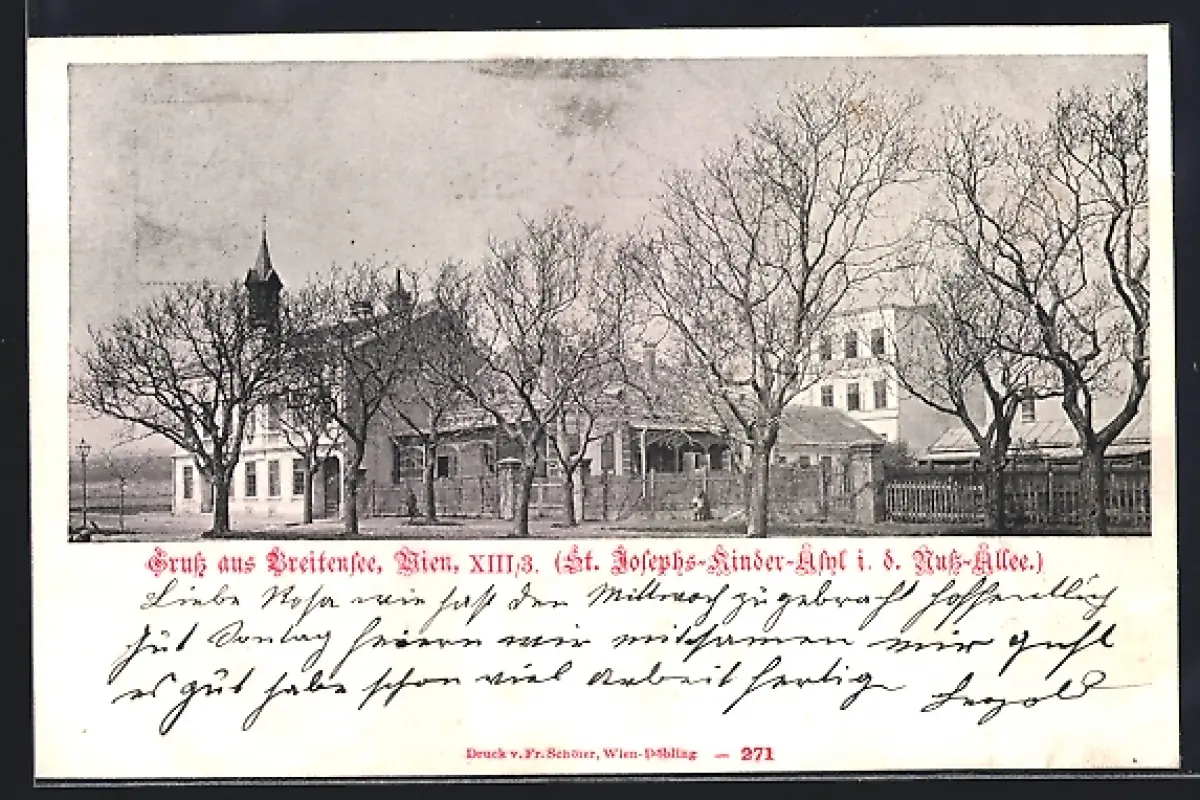 Gruß aus Breitensee, Wien, XIII/3. (St. Josephs-Kinder-Asyl i. d. Nuß-Allee.)
Liebe Rosa wie hast den Mittwoch zugebracht hoffentlich
gut Sontag feiern wir mitsamen mir geht
es gut habe schon viel Arbeit fertig Leopold
Druck v. Fr. Schöler, Wien-Döbling — 271